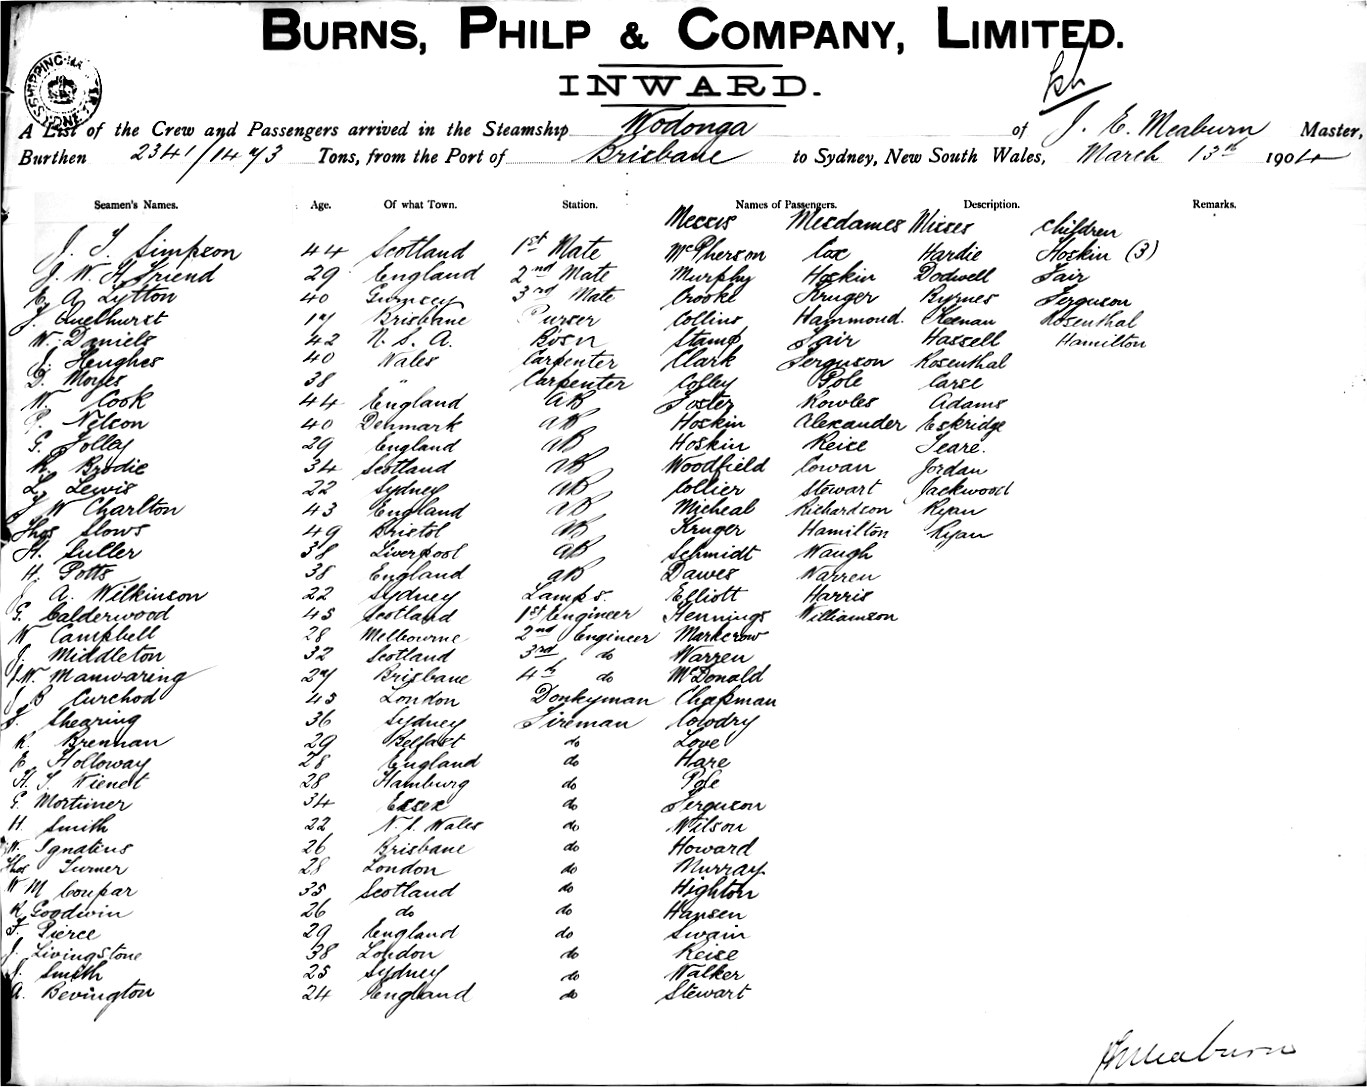 BURNS, PHILP & COMPANY, LIMITED.
INWARD.
SHIPPING MASTER SYDNEY
A List of the Crew and Passengers arrived in the Steamship Wodonga of J. E. Meaburn, Master,
Burthen 2341/1473 Tons, from the Port of Brisbane to Sydney, New South Wales, March 13th 1904
Seamen's Names. Age. Of what Town. Station. Names of Passengers. Description. Remarks.
Messrs Mesdames Misses Children
J. T. Simpson 44 Scotland 1st Mate McPherson Cox Hardie Hoskin (3)
J. W. H. Friend 29 England 2nd Mate Murphy Hoskin Dodwell Fair
E. A. Lytton 40 Gurnsey 3rd Mate Crooke Kruger Byrnes Ferguson
J. 17 Brisbane Purser Collins Hammond. Keenan Rosenthal
W. Daniels 42 U. S. A. Bosn Stamp Fair Hassell Hamilton
J. Hughes 40 Wales Carpenter Clark Ferguson Rosenthal
D. Moyes 38 " Carpenter Colley Pole Carse
W. Cook 44 England AB Foster Rowles Adams
P. Nelson 40 Denmark AB Hoskin Alexander Eskridge
G. Jolley 29 England AB Hoskin Reice Teare.
R. Brodie 34 Scotland AB Woodfield Cowan Jordan
L. Lewis 22 Sydney AB Collier Stewart Jackwood
J W Charlton 43 England AB Micheal Richardson Ryan
Thos Slows 49 Bristol AB Kruger Hamilton Ryan
H. Suller 38 Liverpool AB Schmidt Waugh
H. Potts 38 England AB Dawes Warren
J. A. Wilkinson 22 Sydney Lamps. Elliott Harris
G. Calderwood 45 Scotland 1st Engineer Hennings Williamson
W Campbell 28 Melbourne 2nd Engineer Markerow
J. Middleton 32 Scotland 3rd do Warren
J. W. Manwaring 27 Brisbane 4th do McDonald
J. B Curchod 45 London Donkyman Chapman
F. Shearing 36 Sydney Fireman Cowdry
R. Brennan 29 Belfast do Love
E. Holloway 28 England do Hare
H. T. Wienet 28 Hamburg do Pole
G. Mortimer 34 Essex do Ferguson
H. Smith 22 N. S. Wales do Wilson
W. Ignatius 26 Brisbane do Howard
Thos Turner 28 London do Murray
W M Coupar 35 Scotland do Highton
R. Goodwin 26 do do Hansen
F. Pierce 29 England do Swain
J. Livingstone 38 London do Reise
J. Smith 25 Sydney do Walker
A. Bevington 24 England do Stewart
J E Meaburn